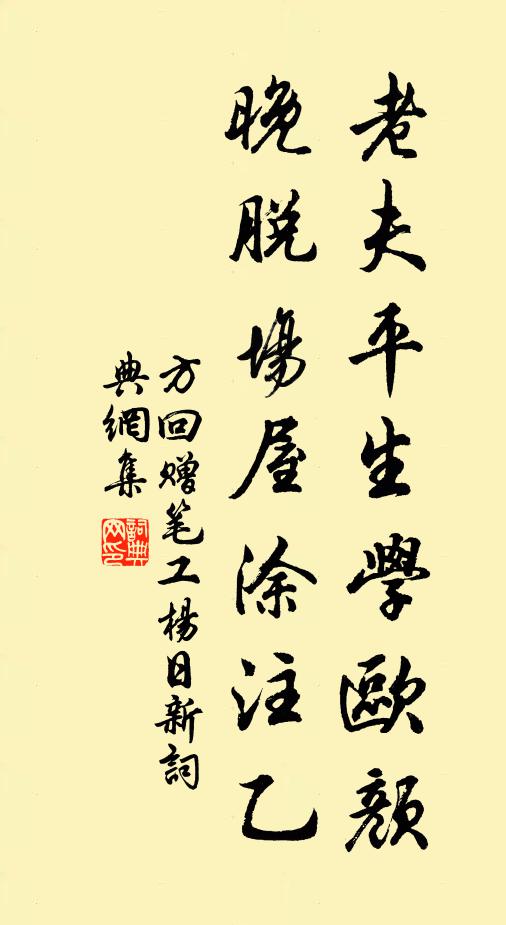 老夫平生學歐顏
晚脱場屋涂注乙
方回赠笔工楊日新詞
典網集
詞典網印